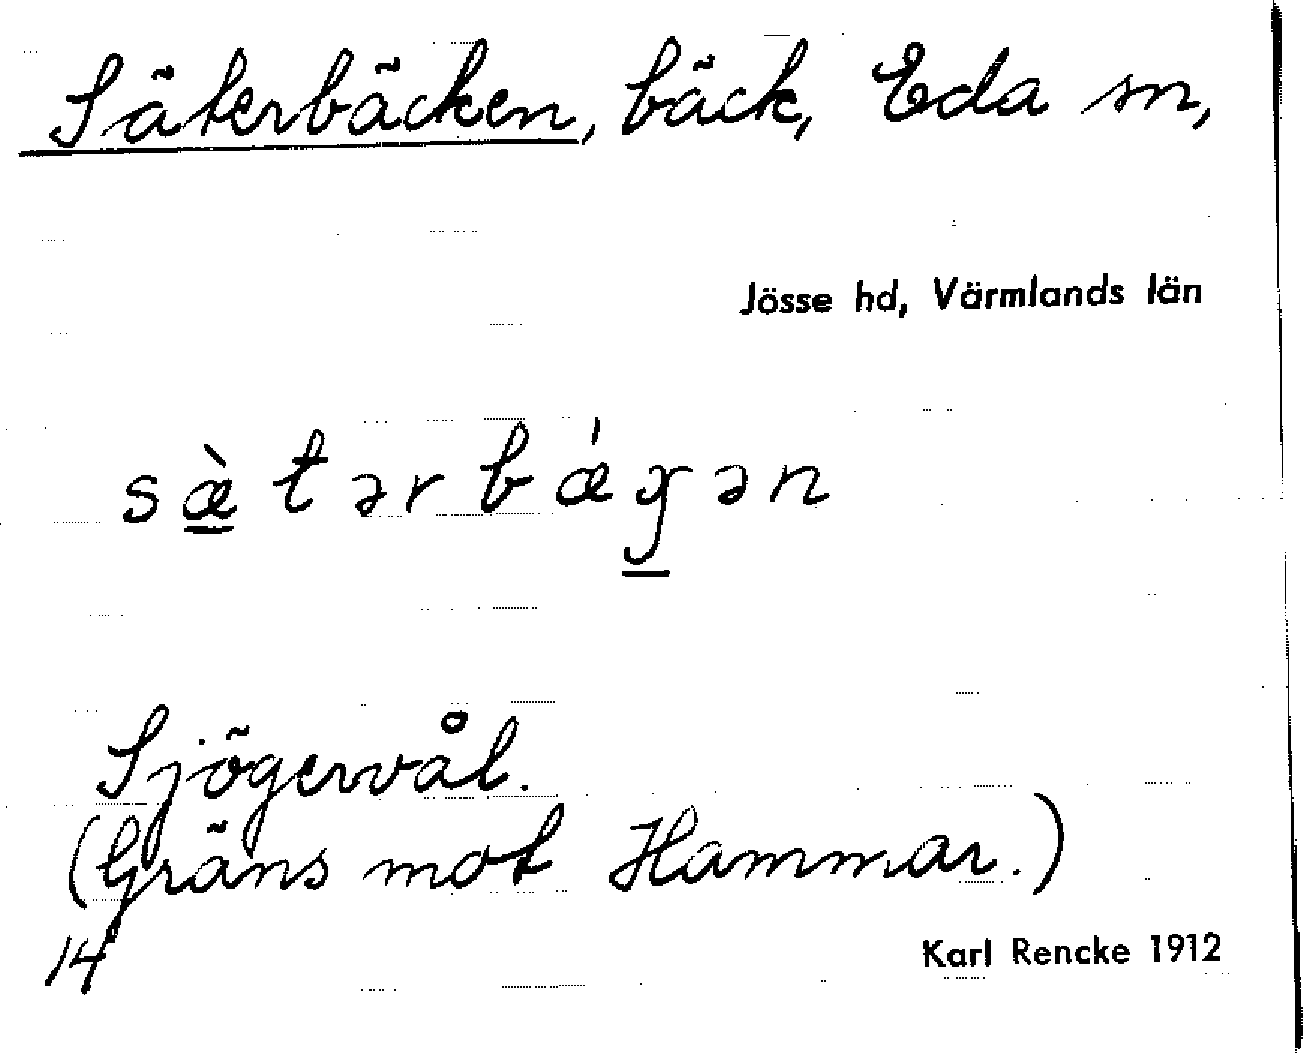 Säterbäcken, bäck, Eda sn,
Jösse hd, Värmlands län
sæ̠̀tərbǽɣ̠ən
Sjögervål.
(Gräns mot Hammar.)
14
Karl Rencke 1912